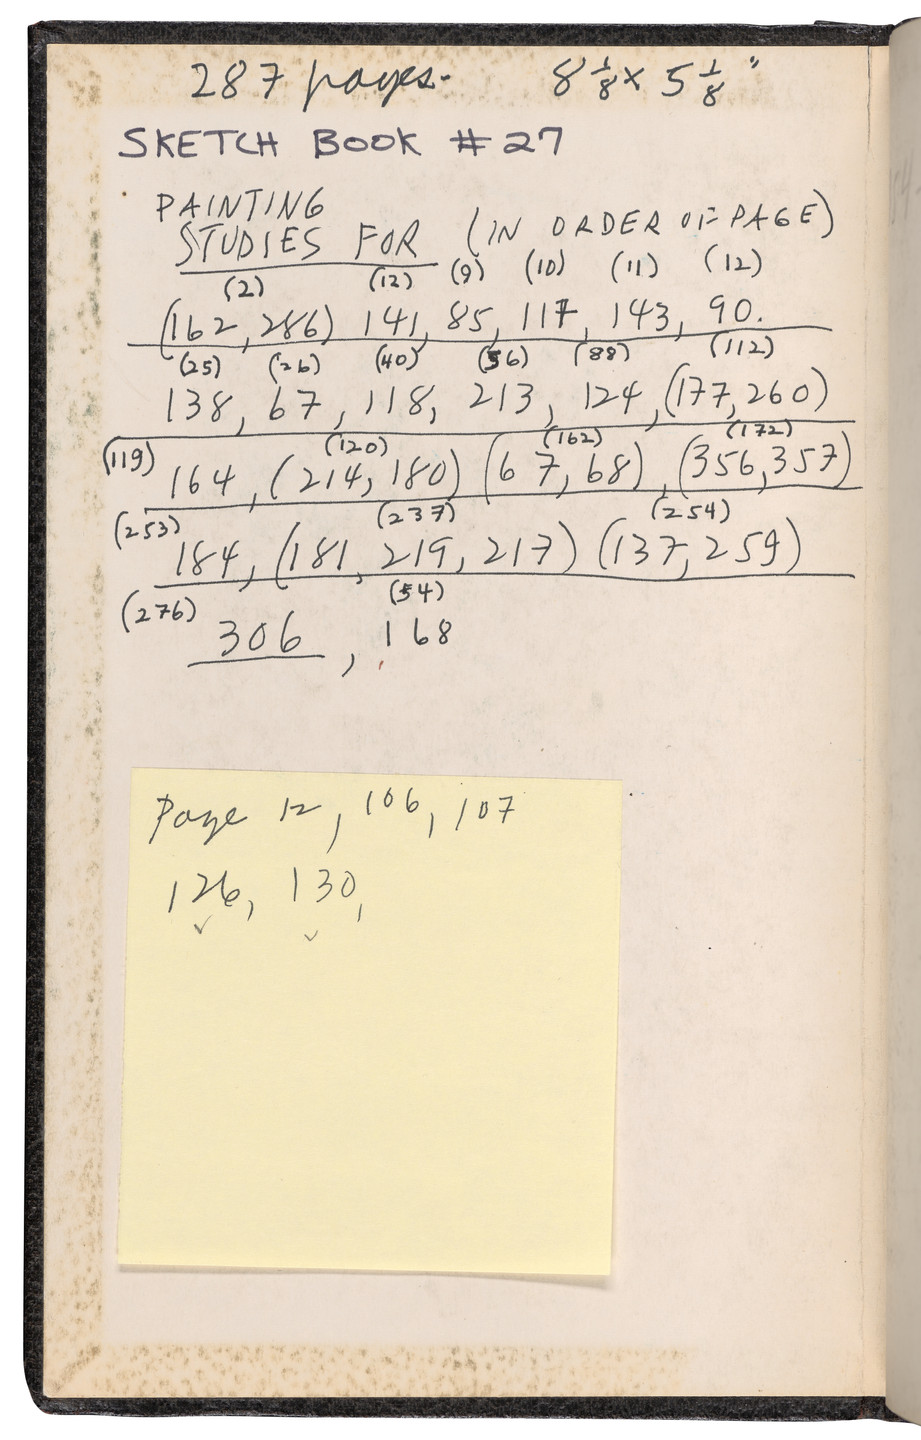 287 pages. 8 1/8 x 5 1/8"
SKETCH BOOK #27
PAINTING
STUDIES FOR (IN ORDER OF PAGE)
(2) (12) (9) (10) (11) (12)
(162, 286) 141, 85, 117, 143, 90.
(25) (26) (40) (56) (88) (112)
138, 67, 118, 213, 124, (177, 260)
(119) (120) (162) (172)
164, (214, 180) (67, 68), (356, 357)
(253) (237) (254)
184, (181, 219, 217) (137, 259)
(276) (54)
306, 168
Page 12, 106, 107
126, 130,